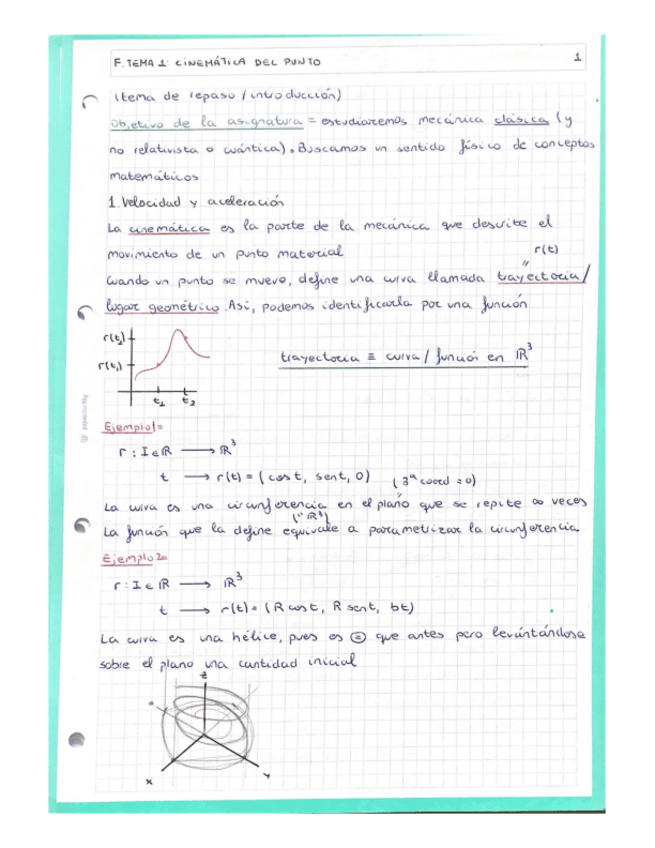 F. TEMA 1: CINEMÁTICA DEL PUNTO
1
(tema de repaso / introducción)
Objetivo de la asignatura = estudiaremos mecánica clásica (y
no relativista o cuántica). Buscamos un sentido físico de conceptos
matemáticos
1. Velocidad y aceleración
La cinemática es la parte de la mecánica que describe el
movimiento de un punto material
r(t)
"
Cuando un punto se mueve, define una curva llamada trayectoria /
lugar geométrico. Así, podemos identificarla por una función
r(t₂)
r(t₁)
t₁ t₂
trayectoria ≡ curva / función en ℝ³
Ejemplo 1=
r : I ∈ ℝ → ℝ³
t → r(t) = (cos t, sen t, 0) (3ª coord = 0)
La curva es una circunferencia en el plano que se repite ∞ veces
(" ℝ³)
La función que la define equivale a parametrizar la circunferencia
Ejemplo 2=
r : I ∈ ℝ → ℝ³
t → r(t) = (R cos t, R sen t, bt)
La curva es una hélice, pues es ⊜ que antes pero levantándose
sobre el plano una cantidad inicial
z
x
y